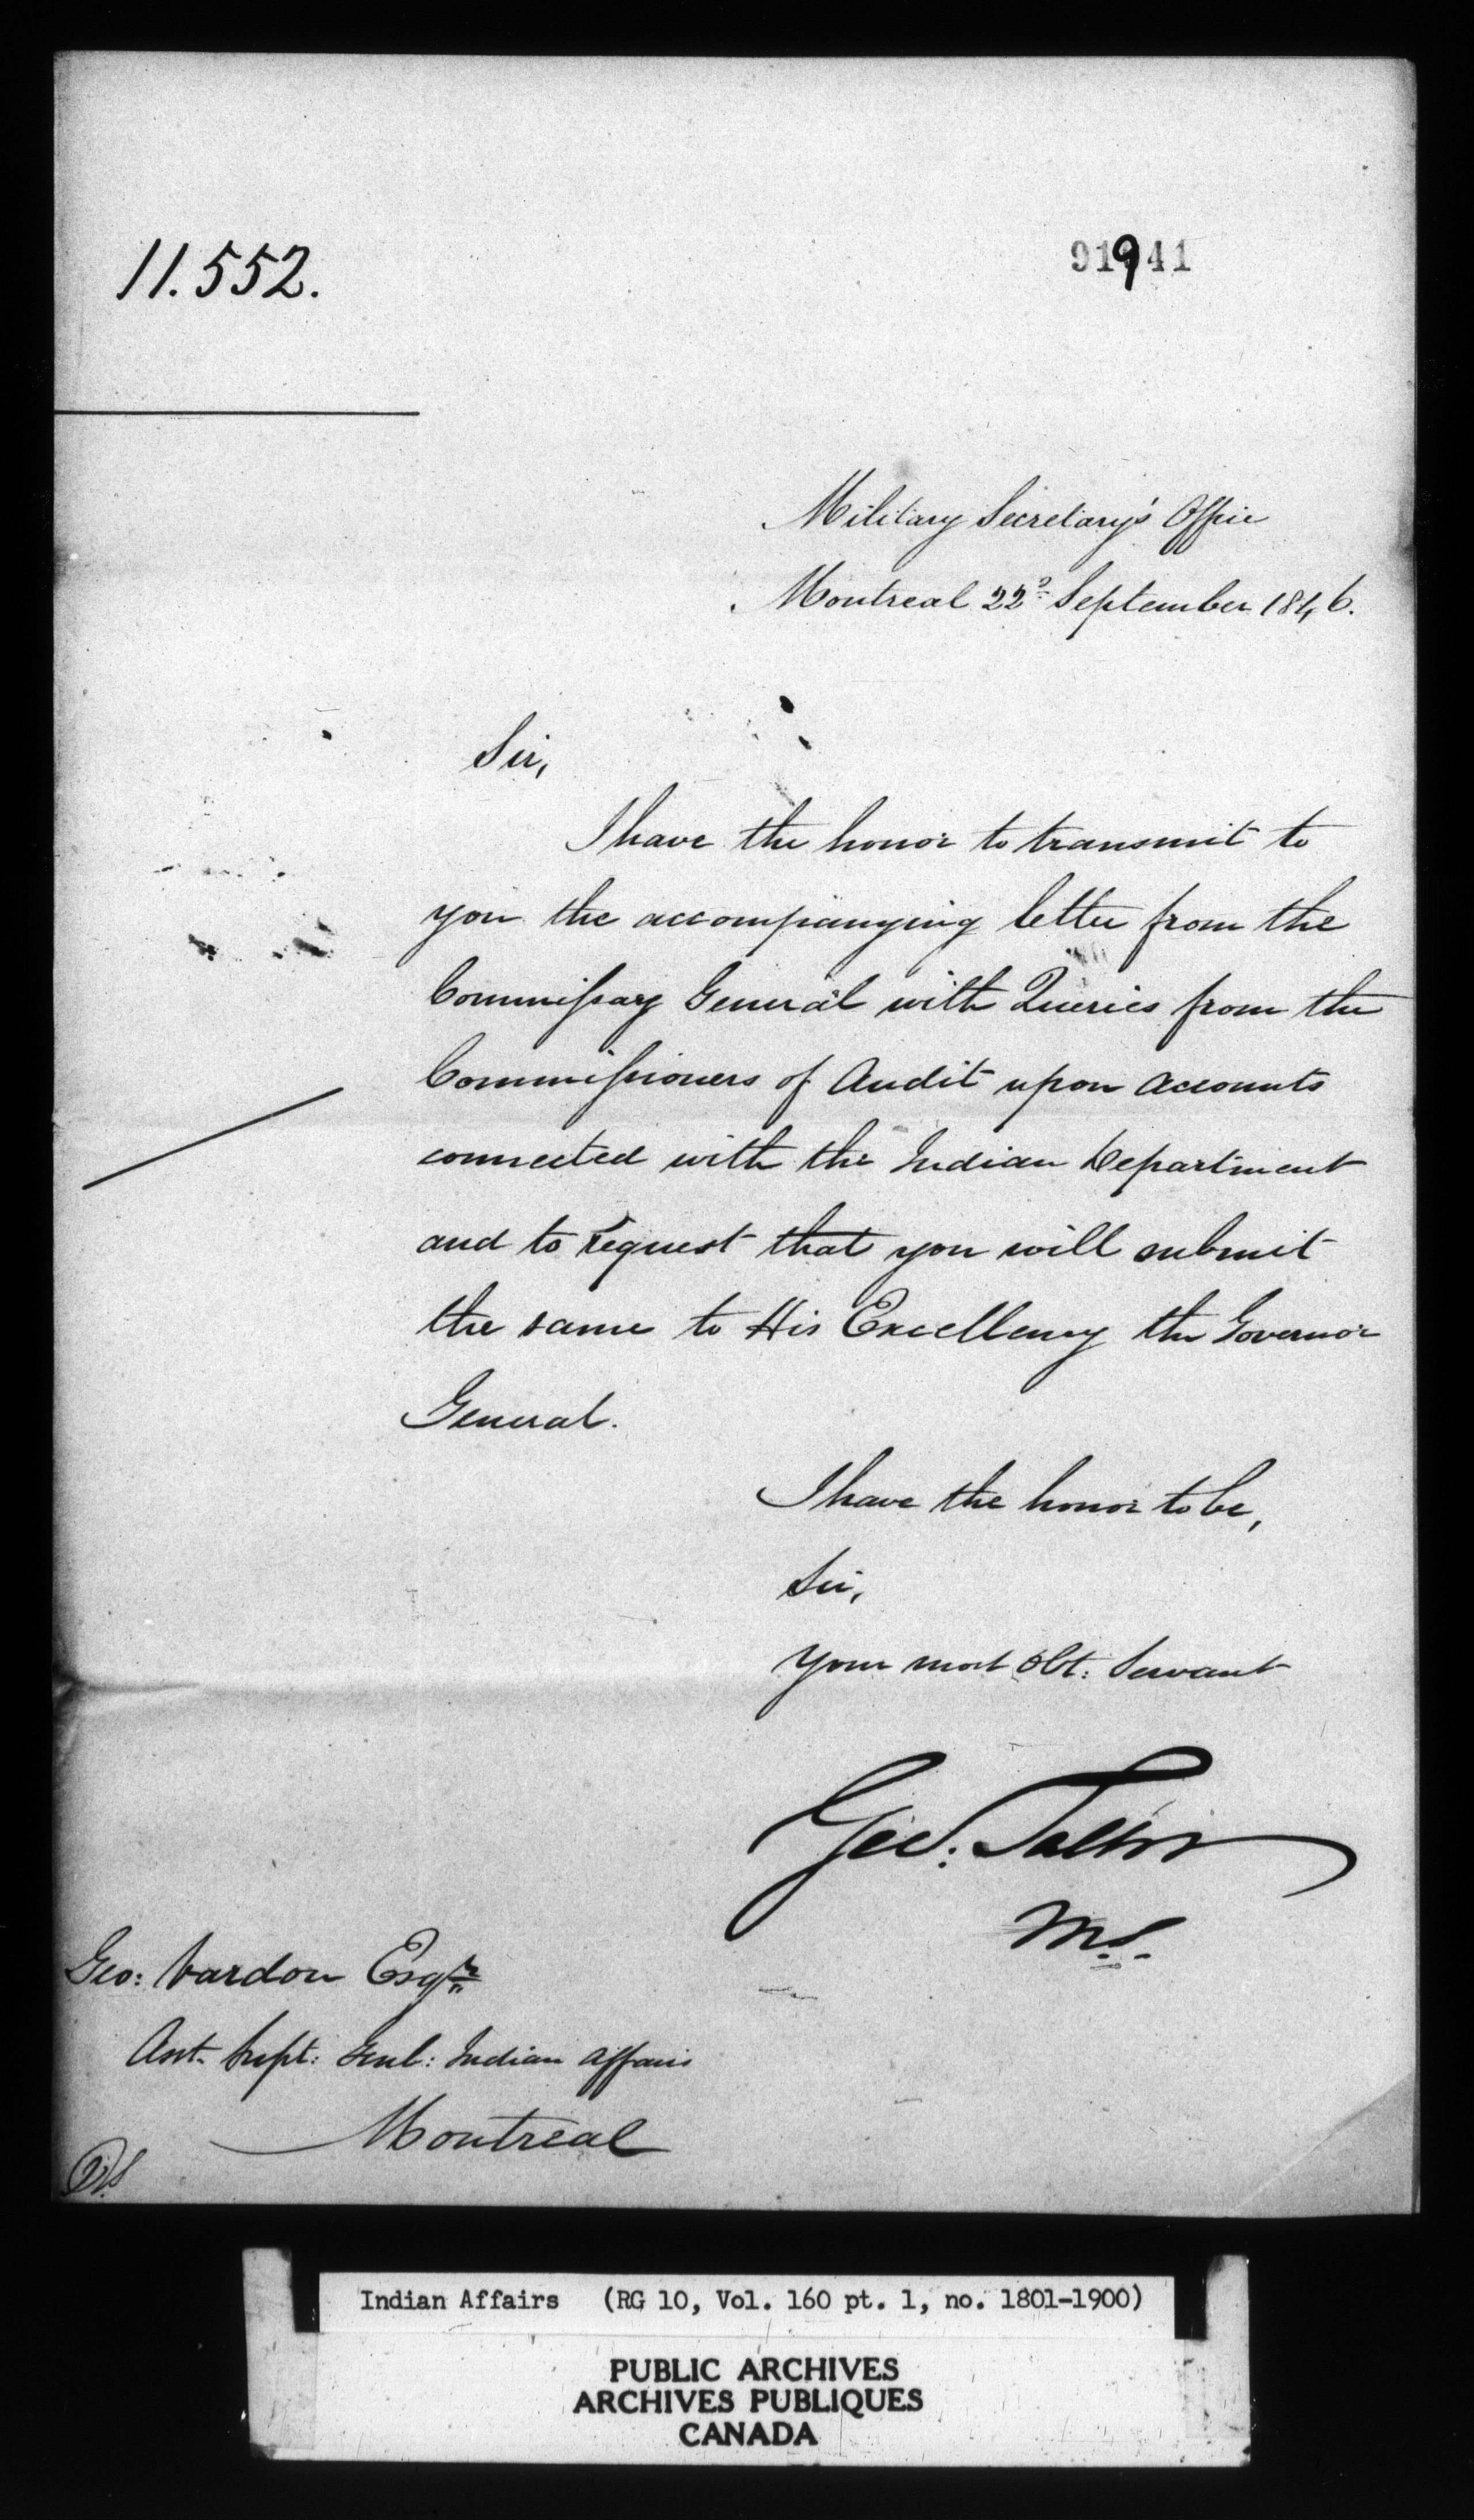 11.552.
91941
Military Secretary's Office
Montreal 22d September 1846.
Sir,
I have the honor to transmit to
you the accompanying letter from the
Commissary General with Queries from the
Commissioners of Audit upon accounts
connected with the Indian Department
and to request that you will submit
the same to His Excellency the Governor
General.
I have the honor to be,
Sir,
Your most Obt: Servant
Geo: Talbot
M.S.
Geo: Vardon Esqr
Asst. Supt: Genl: Indian Affairs
Montreal
Indian Affairs (RG 10, Vol. 160 pt. 1, no. 1801-1900)
PUBLIC ARCHIVES
ARCHIVES PUBLIQUES
CANADA